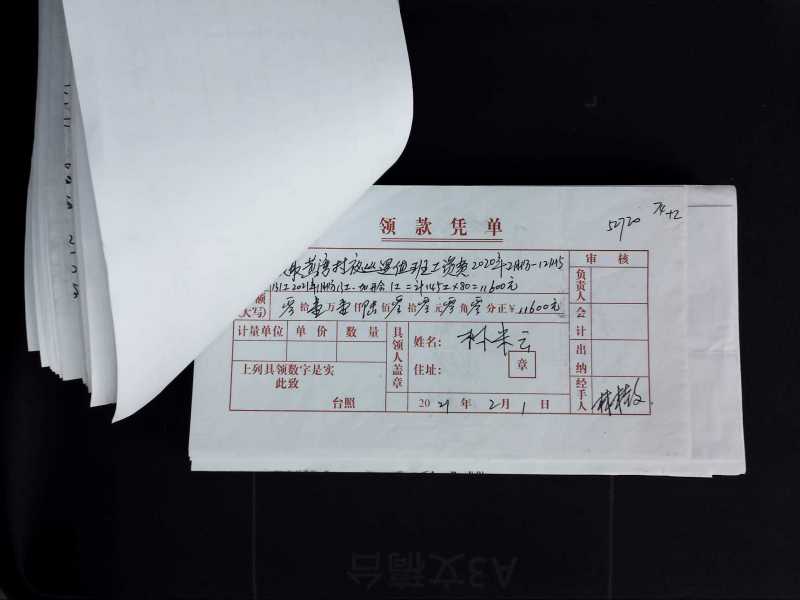 领款凭单
52720
黄湾村 值班工资费2020年2月份-12月
2021年1月份 工=计145工×80=11600元
额
大写) 零拾壹万壹仟陆佰零拾零元零角零分正￥11600元
审核
负责人
会计
出纳
经手人
计量单位 单价 数量
具领人盖章
姓名: 林米云
住址: 章
上列具领数字是实
此致
台照
2021年2月1日
A3文稿台